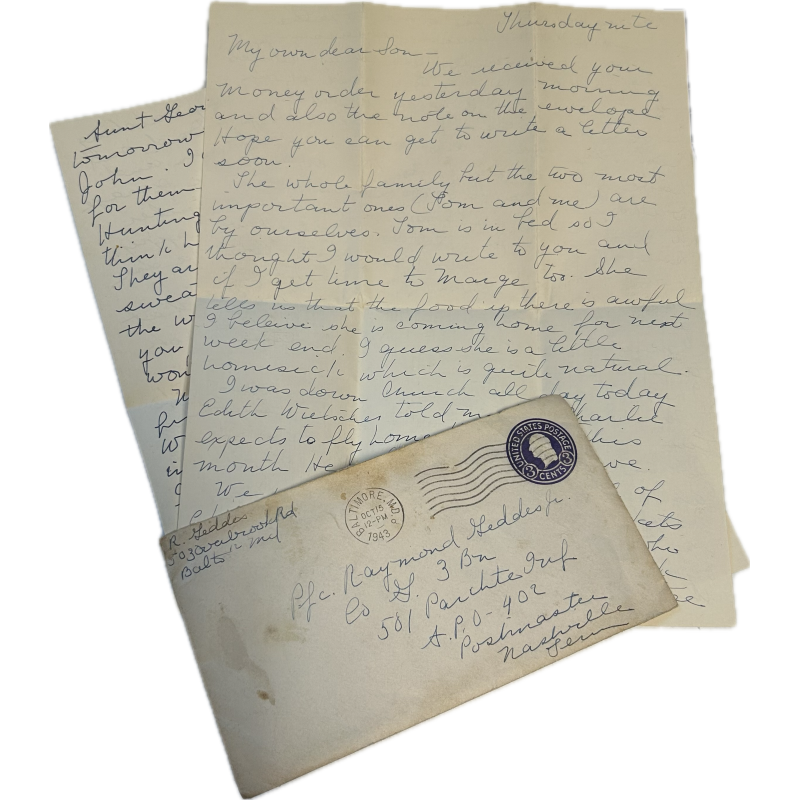 Thursday nite
My own dear Son –
We received your
money order yesterday morning
and also the note on the envelope
Hope you can get to write a letter
soon.
The whole family but the two most
important ones (Pom and me) are
by ourselves. Tom is in bed so I
thought I would write to you and
if I get time to Marge, too. She
tells us that the food up there is awful
I beleive she is coming home for next
week end. I guess she is a little
homesick which is quite natural.
I was down Church all day today
Edith told Charlie
expects to fly home this
month He
We
of
Aunt
tomorrow
John. I
for them
Hunting
think h
They are
sweat
the w
you
won
UNITED STATES POSTAGE
3 CENTS 3
BALTIMORE, MD.
OCT 15
12-PM
1943
R. Geddes
503 Overbrook Rd
Balto 12 Md
Pfc. Raymond Geddes Jr.
Co G. 3 Bn
501 Parchte Inf
A.P.O - 402
Postmaster
Nashville
Tenn